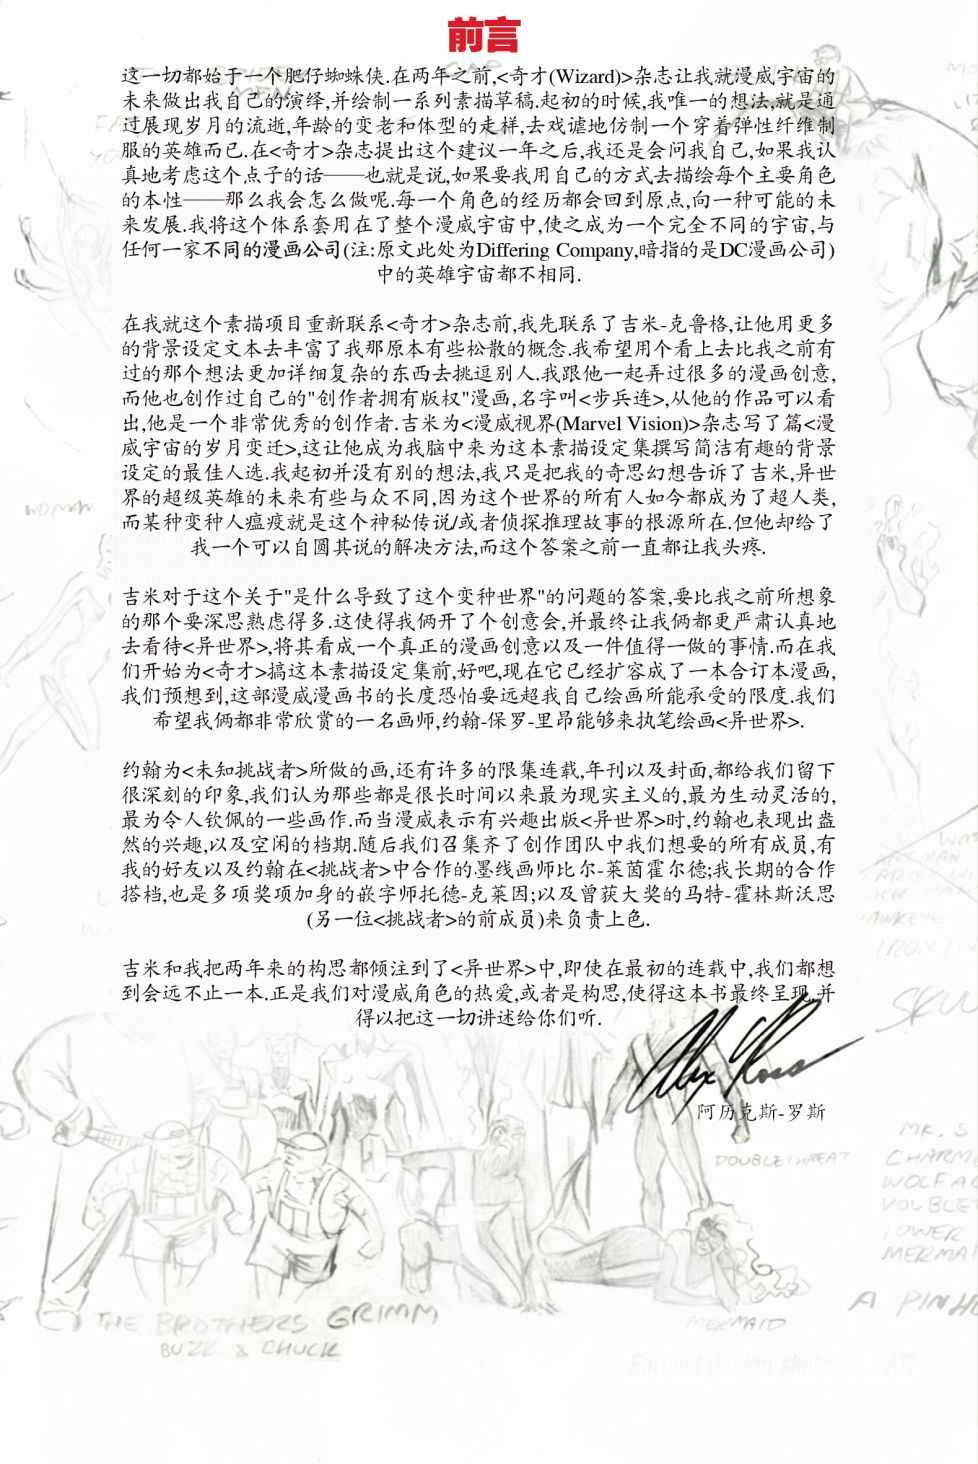 前言
这一切都始于一个肥仔蜘蛛侠.在两年之前,<奇才(Wizard)>杂志让我就漫威宇宙的
未来做出我自己的演绎,并绘制一系列素描草稿.起初的时候,我唯一的想法,就是通
过展现岁月的流逝,年龄的变老和体型的走样,去戏谑地仿制一个穿着弹性纤维制
服的英雄而已.在<奇才>杂志提出这个建议一年之后,我还是会问我自己,如果我认
真地考虑这个点子的话——也就是说,如果要我用自己的方式去描绘每个主要角色
的本性——那么我会怎么做呢.每一个角色的经历都会回到原点,向一种可能的未
来发展.我将这个体系套用在了整个漫威宇宙中,使之成为一个完全不同的宇宙,与
任何一家不同的漫画公司(注:原文此处为Differing Company,暗指的是DC漫画公司)
中的英雄宇宙都不相同.
在我就这个素描项目重新联系<奇才>杂志前,我先联系了吉米-克鲁格,让他用更多
的背景设定文本去丰富了我那原本有些松散的概念.我希望用个看上去比我之前有
过的那个想法更加详细复杂的东西去挑逗别人.我跟他一起弄过很多的漫画创意,
而他也创作过自己的"创作者拥有版权"漫画,名字叫<步兵连>,从他的作品可以看
出,他是一个非常优秀的创作者.吉米为<漫威视界(Marvel Vision)>杂志写了篇<漫
威宇宙的岁月变迁>,这让他成为我脑中来为这本素描设定集撰写简洁有趣的背景
设定的最佳人选.我起初并没有别的想法,我只是把我的奇思幻想告诉了吉米,异世
界的超级英雄的未来有些与众不同,因为这个世界的所有人如今都成为了超人类,
而某种变种人瘟疫就是这个神秘传说/或者侦探推理故事的根源所在.但他却给了
我一个可以自圆其说的解决方法,而这个答案之前一直都让我头疼.
吉米对于这个关于"是什么导致了这个变种世界"的问题的答案,要比我之前所想象
的那个要深思熟虑得多.这使得我俩开了个创意会,并最终让我俩都更严肃认真地
去看待<异世界>,将其看成一个真正的漫画创意以及一件值得一做的事情.而在我
们开始为<奇才>搞这本素描设定集前,好吧,现在它已经扩容成了一本合订本漫画,
我们预想到,这部漫威漫画书的长度恐怕要远超我自己绘画所能承受的限度.我们
希望我俩都非常欣赏的一名画师,约翰-保罗-里昂能够来执笔绘画<异世界>.
约翰为<未知挑战者>所做的画,还有许多的限集连载,年刊以及封面,都给我们留下
很深刻的印象,我们认为那些都是很长时间以来最为现实主义的,最为生动灵活的,
最为令人钦佩的一些画作.而当漫威表示有兴趣出版<异世界>时,约翰也表现出盎
然的兴趣,以及空闲的档期.随后我们召集齐了创作团队中我们想要的所有成员,有
我的好友以及约翰在<挑战者>中合作的墨线画师比尔-莱茵霍尔德;我长期的合作
搭档,也是多项奖项加身的嵌字师托德-克莱因;以及曾获大奖的马特-霍林斯沃思
(另一位<挑战者>的前成员)来负责上色.
吉米和我把两年来的构思都倾注到了<异世界>中,即使在最初的连载中,我们都想
到会远不止一本.正是我们对漫威角色的热爱,或者是构思,使得这本书最终呈现,并
得以把这一切讲述给你们听.
Alex Ross
阿历克斯-罗斯
WOMAN
IRON
MR. S
DOUBLETHREAT
MERMA
A PINH
THE BROTHERS GRIMM
BUZZ & CHUCK
MERMAID
Earliest design sketches / AR